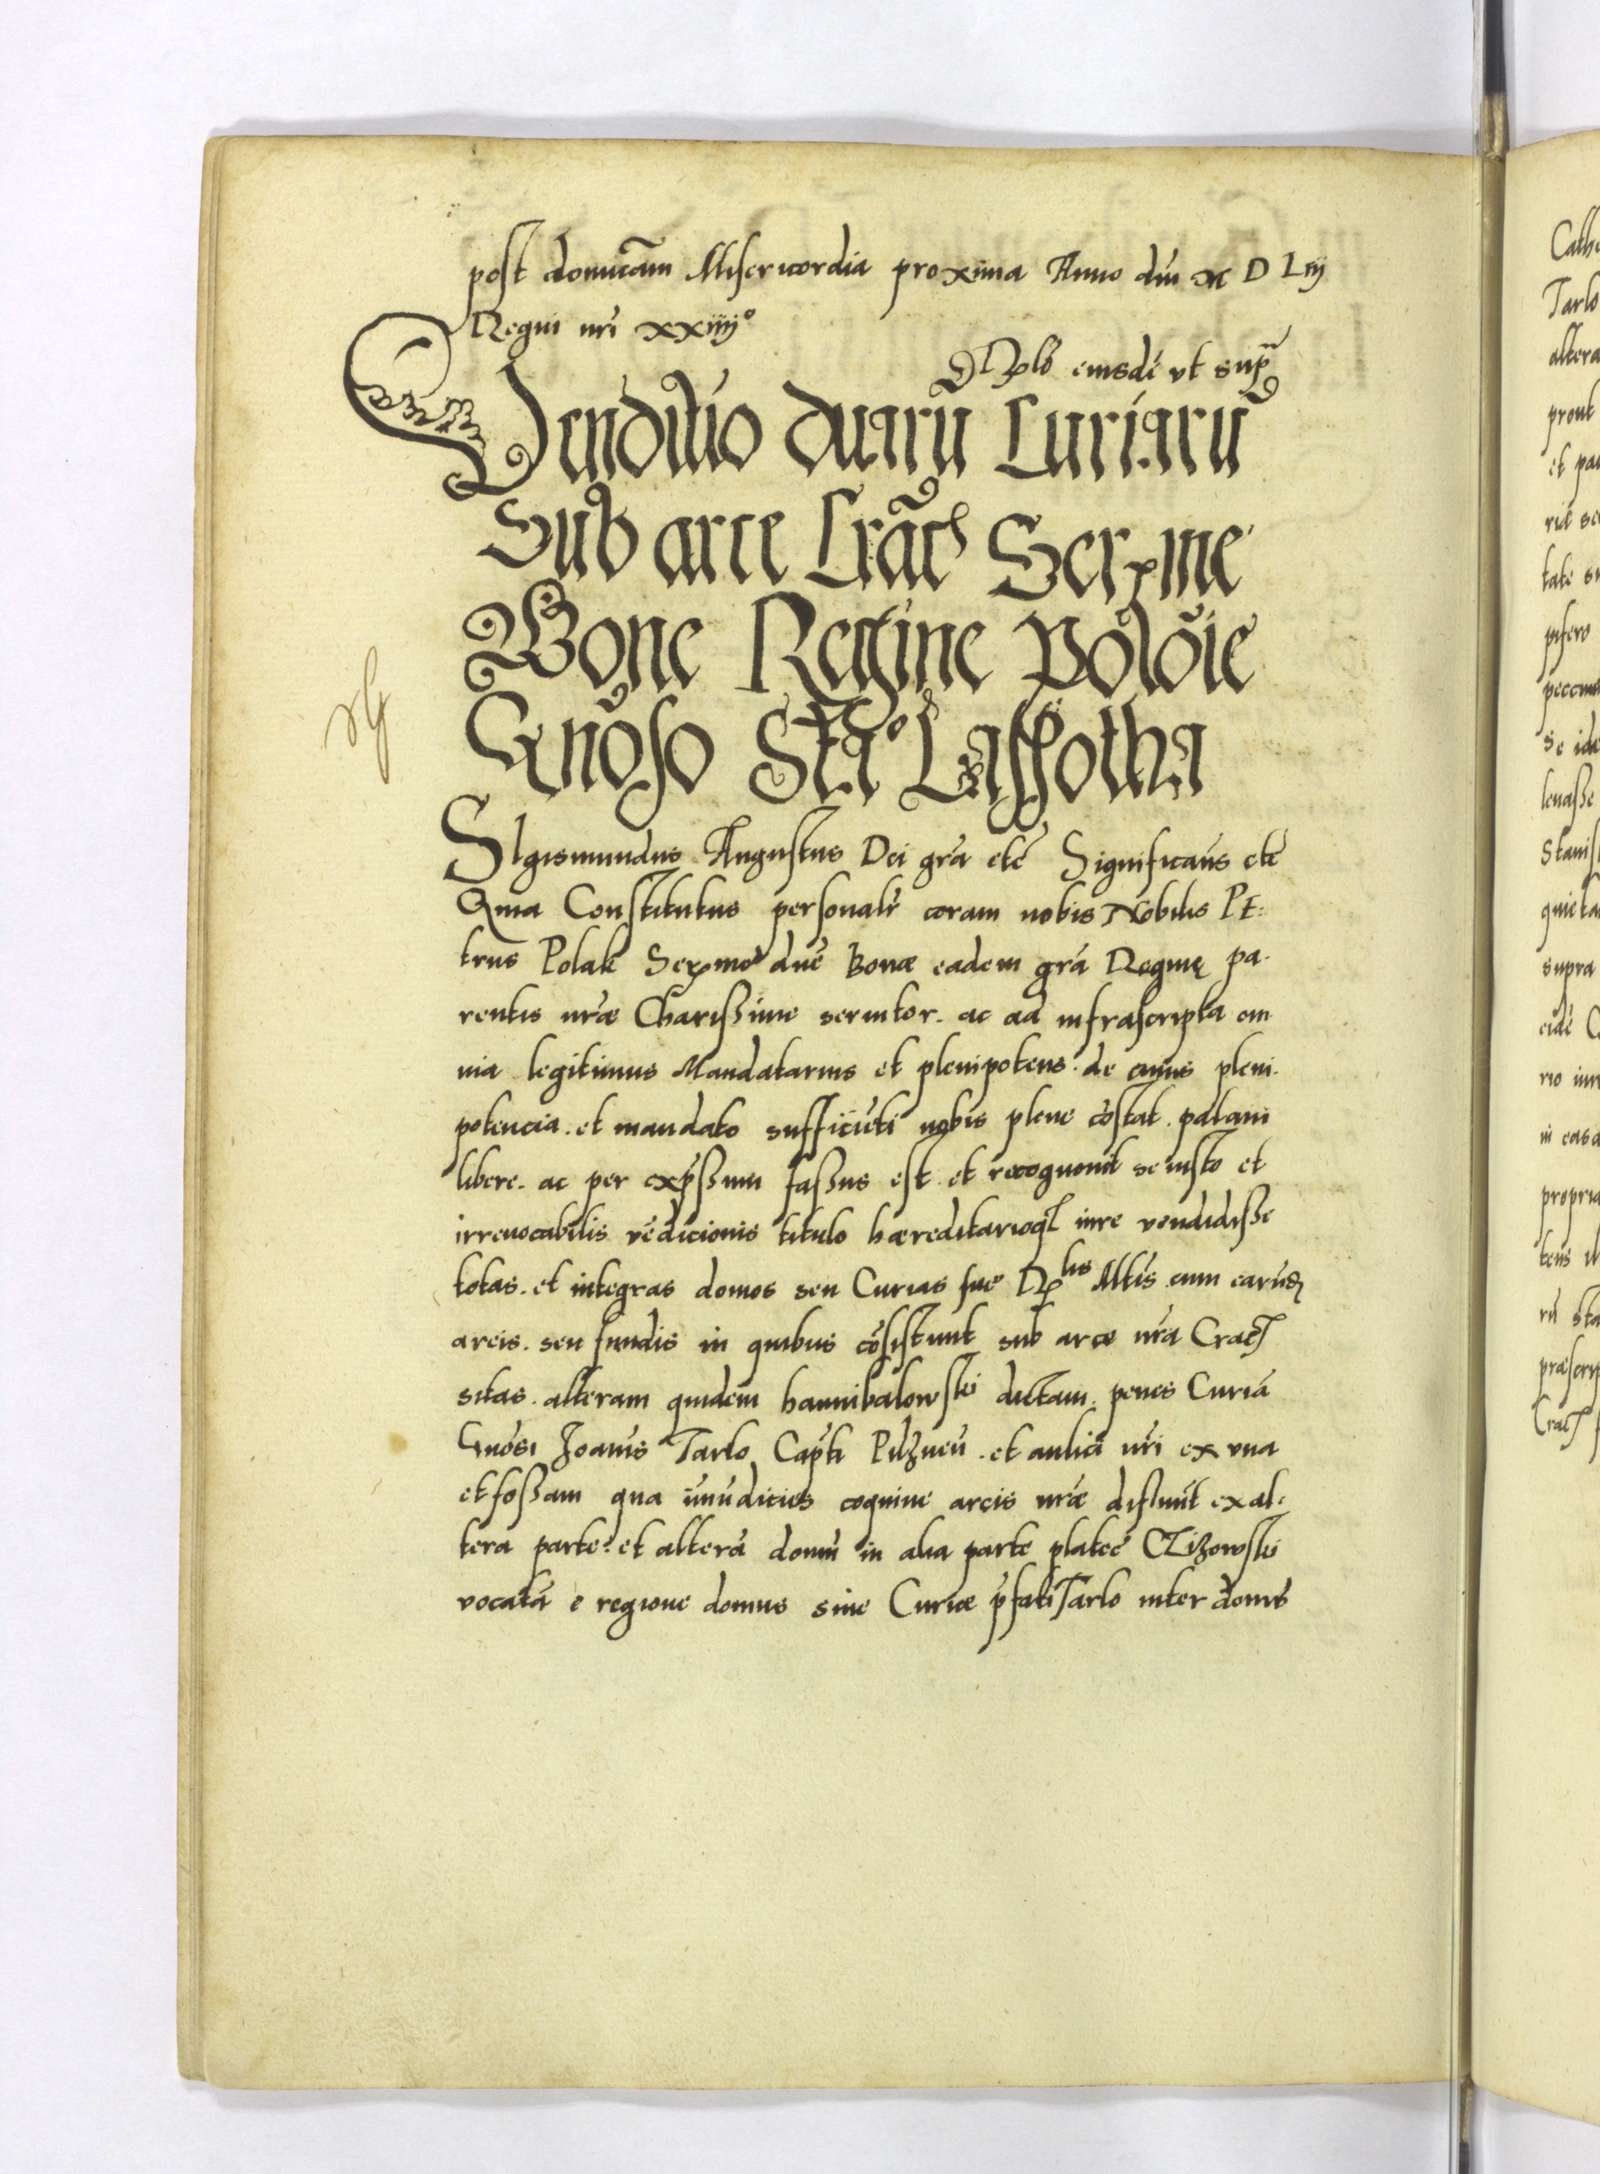 post domicam Misericordia proxima Anno dni M D Liij
Regni nri xxiiij°
eiusde vt supra
Venditio duarū Curiarū
Sub arce Crac Serme
Bone Regine Polōie
Gnōso Sta° Lassotha
SIgismundus Augustus Dei gra etc Significaus etc
Quia Constitutus personalr coram nobis Nobilis PE:
trus Polak Sermæ dne Bonæ eadem gra Reginę pa.
rentis nræ Charissime seruitor. ac ad infrascripta om
nia legitimus Mandatarius et plenipotens. de cuius pleni.
potencia. et mandato sufficiēti nobis plene cōstat. palam
libere. ac per expssum fassus est. et recognouit se iusto et
irreuocabilis vēdicionis titulo hæreditarioq iure vendidisse
totas. et integras domos seu Curias sue Rlis Mtis. cum earūd
areis. seu fundis in quibus cōsistunt sub arce nra Crac
sitas. alteram quidem hannibalowski dictam. penes Curiā
Gnosi Joānis Tarlo Capti Pilzneū. et aulici nri ex vna
et fossam qua imūdicies coquine arcis nræ difluūt ex al:
tera parte: et alterā domū in alia parte platee CLizowski
vocatā e regione domus siue Curiæ pfati Tarlo inter domū
Tarlo
altera
prout
supra
propria